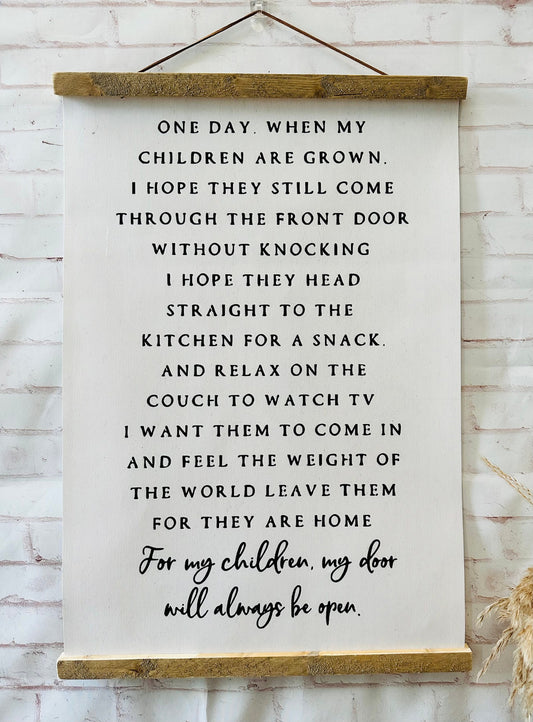 ONE DAY. WHEN MY
CHILDREN ARE GROWN.
I HOPE THEY STILL COME
THROUGH THE FRONT DOOR
WITHOUT KNOCKING
I HOPE THEY HEAD
STRAIGHT TO THE
KITCHEN FOR A SNACK.
AND RELAX ON THE
COUCH TO WATCH TV
I WANT THEM TO COME IN
AND FEEL THE WEIGHT OF
THE WORLD LEAVE THEM
FOR THEY ARE HOME
For my children, my door
will always be open.